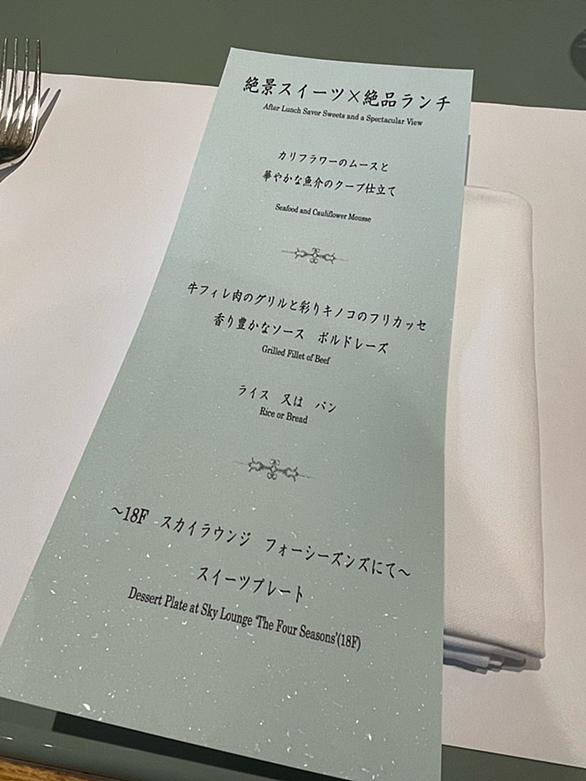 絶景スイーツ×絶品ランチ
After Lunch Savor Sweets and a Spectacular View
カリフラワーのムースと
華やかな魚介のクープ仕立て
Seafood and Cauliflower Mousse
牛フィレ肉のグリルと彩りキノコのフリカッセ
香り豊かなソース　ボルドレーズ
Grilled Fillet of Beef
ライス　又は　パン
Rice or Bread
～18F　スカイラウンジ　フォーシーズンズにて～
スイーツプレート
Dessert Plate at Sky Lounge 'The Four Seasons'(18F)